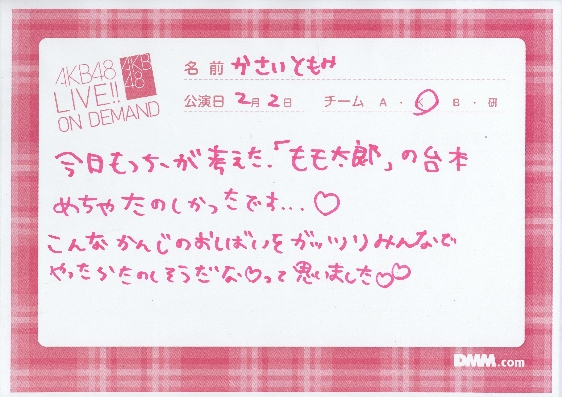 AKB48
LIVE!!
ON DEMAND
AKB
48
名前 かさいともみ
公演日 2月2日 チーム A・K・B・研
今日もっちぃが考えた、「もも太郎」の台本
めちゃたのしかったです...♡
こんなかんじのおしばいをガッツリみんなで
やったらたのしそうだな♡って思いました♡♡
DMM.com